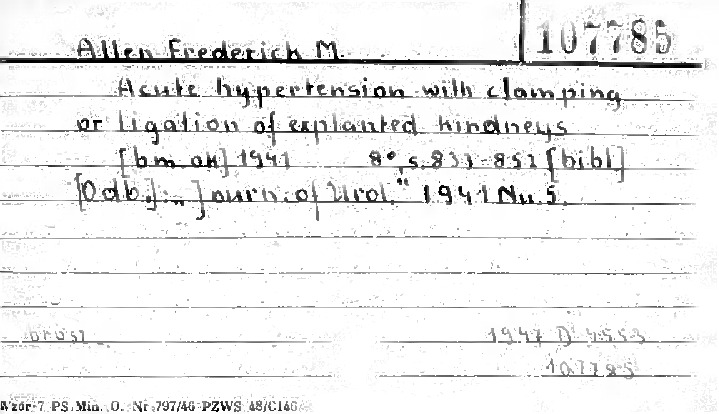 Allen Frederick M.
107785
Acute hypertension with clamping
or ligation of explanted kindneys
[bm ok] 1941 8°, s. 833-852 [bibl]
[Odb.]: „Journ. of Urol." 1941 Nu. 5.
brosz.
1947 D 4553
107785
Wzór-7 PS. Min. O. Nr 797/46-PZWS 48/C146